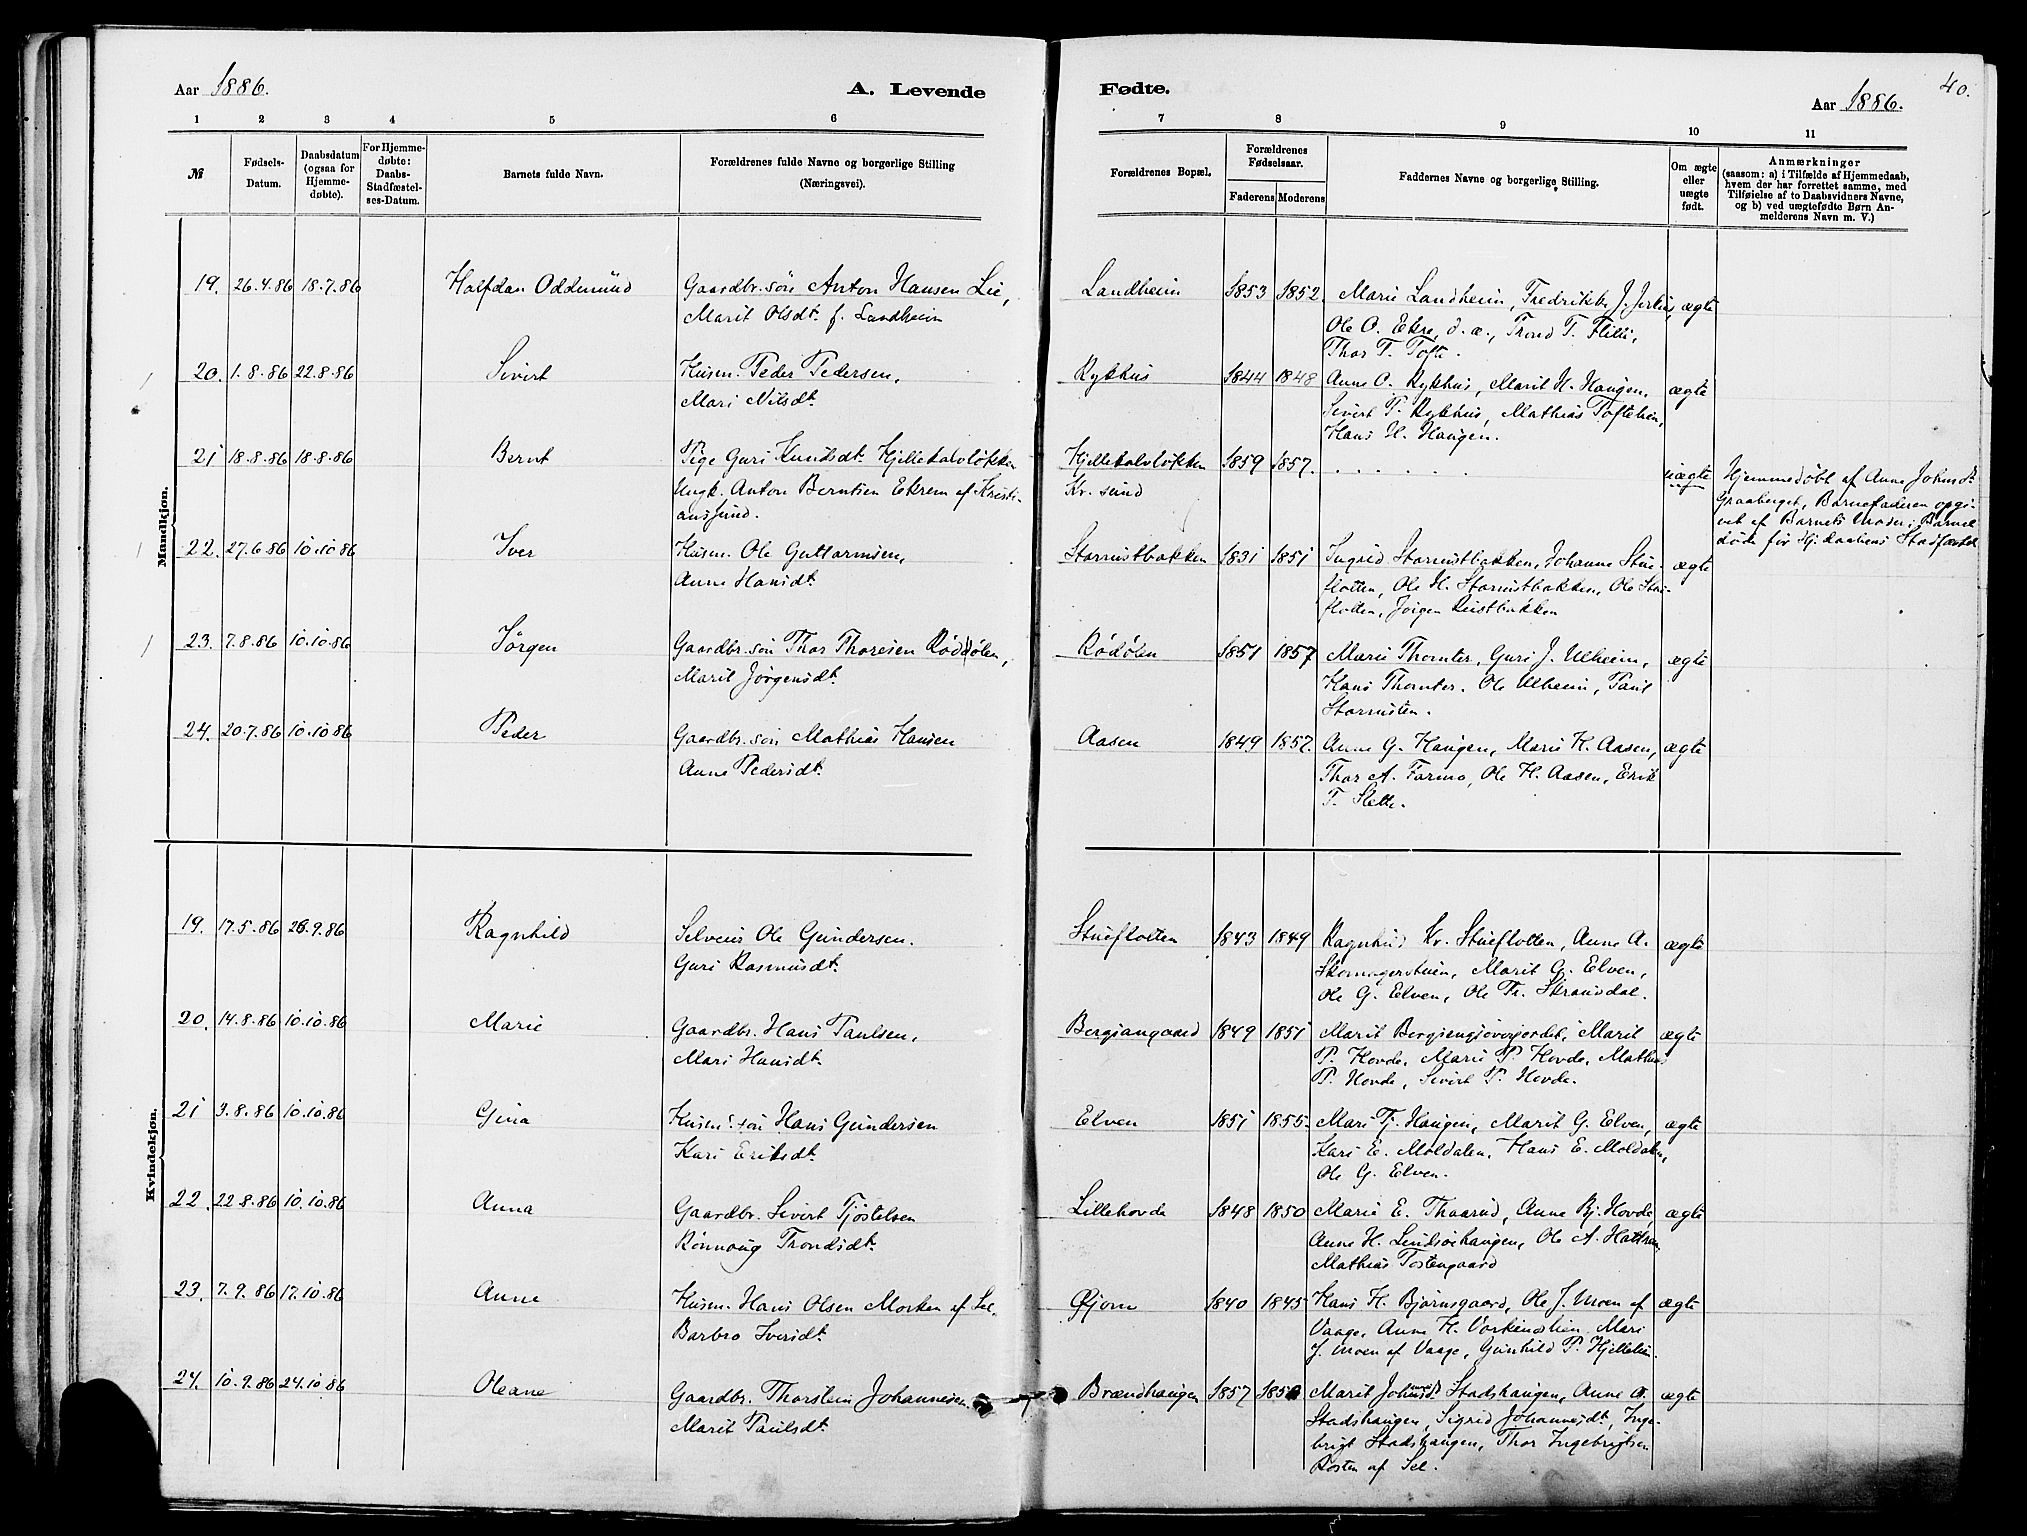 Aar 1886.
A. Levende
1 2 3 4 5 6
№ Fødsels-Datum. Daabsdatum (ogsaa for Hjemmedøbte). For Hjemmedøbte: Daabs-Stadfæstelses-Datum. Barnets fulde Navn. Forældrenes fulde Navne og borgerlige Stilling (Næringsvei).
Mandkjøn.
19. 26.4.86 18.7.86 Halfdan Oddmund Gaardbr.søn Anton Hansen Lie,
Marit Olsdt. f. Landheim
20. 1.8.86 22.8.86 Sivert Husm. Peder Pedersen,
Mari Nilsdt.
21 18.8.86 18.8.86 Bernt Pige Guri Knudsdt. Hjellekalvløkken
Ungk. Anton Berntsen Ekrem af Kristi-
ansund.
22. 27.6.86 10.10.86 Iver Husm. Ole Guttormsen,
Anne Hansdt.
23. 7.8.86 10.10.86 Jörgen Gaardbr.søn Thor Thoresen Rödölen,
Marit Jörgensdt.
24. 20.7.86 10.10.86 Peder Gaardbr.søn Mathias Hansen
Anne Pedersdt.
Kvindekjøn.
19. 17.5.86 26.9.86 Ragnhild Selveier Ole Gundersen.
Guri Rasmusdt.
20. 14.8.86 10.10.86 Marie Gaardbr. Hans Paulsen,
Mari Hansdt.
21 3.8.86 10.10.86 Gina Husm.søn Hans Gundersen
Kari Eriksdt.
22. 22.8.86 10.10.86 Anna Gaardbr. Sivert Tjøstelsen
Rønnaug Trondsdt.
23. 7.9.86 17.10.86 Anne Husm. Hans Olsen Morken af Sel
Barbro Iversdt.
24. 10.9.86 24.10.86 Oleane Gaardbr. Thorstein Johannesen
Marit Paulsdt.
40.
Fødte.
Aar 1886.
7 8 9 10 11
Forældrenes Bopæl. Forældrenes Fødselsaar. Faderens Moderens Faddernes Navne og borgerlige Stilling. Om ægte eller uægte født. Anmærkninger (saasom: a) i Tilfælde af Hjemmedaab, hvem der har forrettet samme, med Tilføielse af to Daabsvidners Navne, og b) ved uægtefødte Børn Anmelderens Navn m. V.)
Landheim 1853 1852. Marie Landheim, Fredrikke J. ægte
Ole O. Ekre, d. æ., Trond T.
Thor T. Tofte.
Rykhus 1844 1848 Anne O. Rykhus, Marit H. Haugen, ægte
Sivert P. Rykhus, Mathias Toftelien,
Hans H. Haugen.
Hjellekalvløkken 1859 1857. . . . . . . uægte Hjemmedøbt af Anne Johnsdt.
Kr. sund Graaberget, Barnefaderen opgi-
vet af Barnets Moder. Barnet
døde før Hj. daabens Stadfæstelse
Storrustbakken 1831 1851 Ingrid Storrustbakken, Johanne Stue- ægte
flotten, Ole H. Storrustbakken, Ole Stue-
flotten, Jörgen Rustbakken
Rödölen 1851 1857 Marie Thomter, Guri J. Ulheim, ægte
Hans Thomter. Ole Ulheim, Paul
Storrusten.
Aasen 1849 1857. Anne G. Haugen, Marie H. Aasen, ægte
Thor A. Formo, Ole H. Aasen, Erik
T. Slette.
Stueflotten 1843 1849 Ragnhild Kr. Stueflotten, Anne A. ægte
Skomagerstuen, Marit G. Elven,
Ole G. Elven, Ole Tr. Stransdal.
Bergsengaard 1849 1851 Marit Bergsengsøvregjordet, Marit ægte
P. Hovde, Marie P. Hovde, Mathias
P. Hovde, Sivert P. Hovde.
Elven 1851 1855. Mari Tj. Haugen, Marit G. Elven, ægte
Kari E. Moldalen, Hans E. Moldalen,
Ole G. Elven.
Lillehovde 1848 1850 Marie E. Thoarud, Anne Bj. Hovde, ægte
Anne H. Lindsøehaugen, Ole A.
Mathias Tostengaard
Gjorn 1840 1845 Hans H. Bjørnsgaard, Ole J. Moen af ægte
Vaage, Anne H. Vorkinnslien, Mari
J. Moen af Vaage, Gunhild P. Hjellelien.
Brændhaugen 1857 1858 Marit Johnsdt. Stadshaugen, Anne O. ægte
Stadshaugen, Sigrid Johannesdt, Inge-
brigt Stadshaugen, Thor Ingebrigtsen
Rosten af Sel.